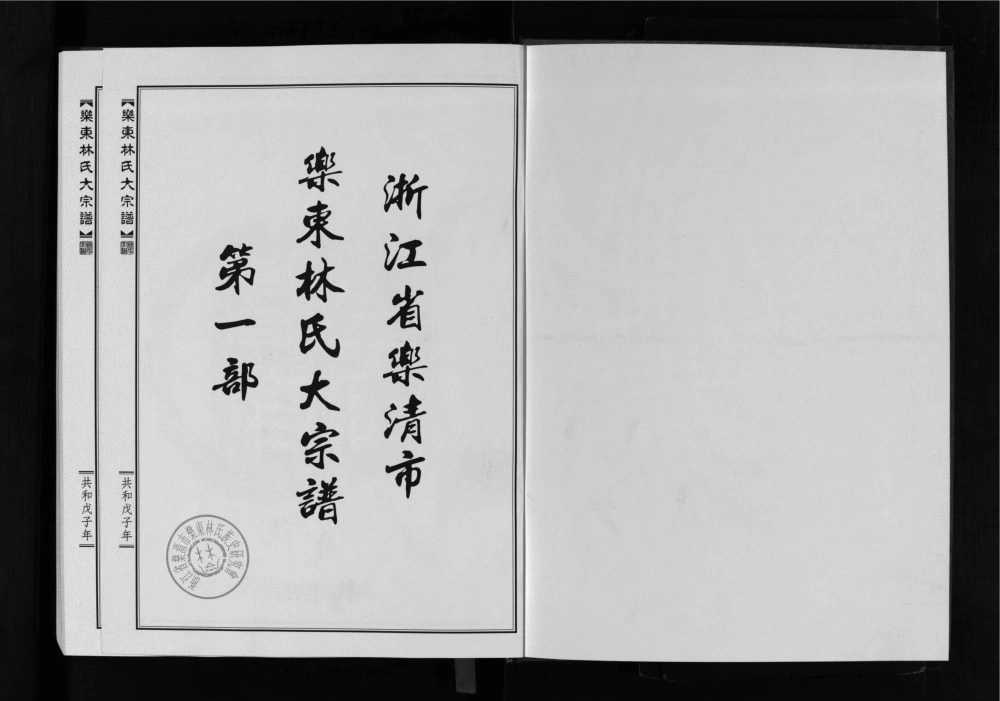 浙江省樂清市
樂東林氏大宗譜
第一部
樂東林氏大宗譜
共和戊子年
樂東林氏大宗譜
共和戊子年